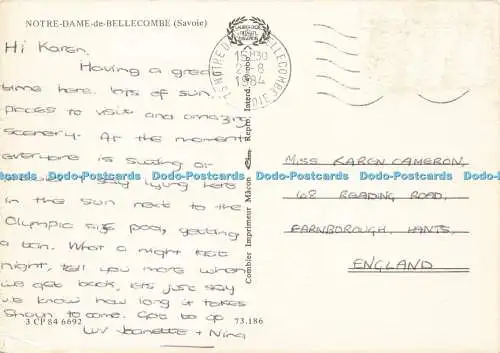 NOTRE-DAME-de-BELLECOMBE (Savoie)
Hi Karen,
Having a great
time here, lots of sun,
places to visit and amazing
scenery. At the moment
everyone is
say lying here
in the sun next to the
Olympic size pool, getting
a tan. What a night last
night, tell you more when
we get back, lets just say
we know how long it takes
to come. Got to go
luv Jeanette + Nina
3 CP 84 6692
73.186
Combier Imprimeur Mâcon
Repro. Interd.
NOTRE DAME BELLECOMBE
15H30
2-8
1984
SAVOIE
MISS KAREN CAMERON,
68 READING ROAD,
FARNBOROUGH, HANTS,
ENGLAND
Dodo-Postcards Dodo-Postcards Dodo-Postcards Dodo-Postcards